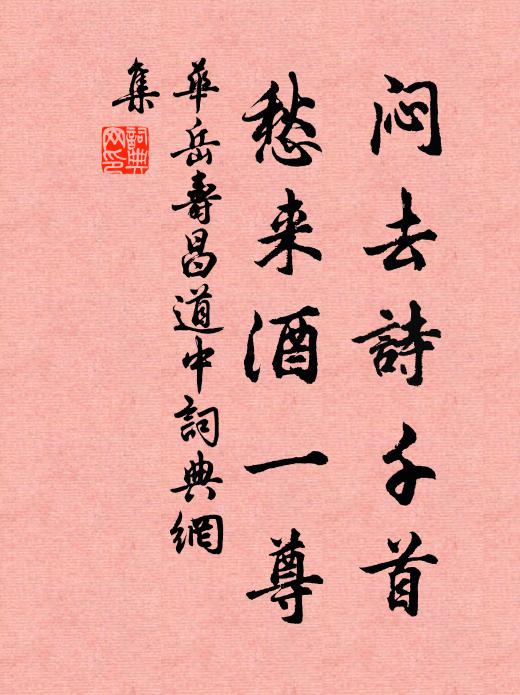 闷去詩千首
愁来酒一尊
華岳壽昌道中詞典網
集
詞典
网印